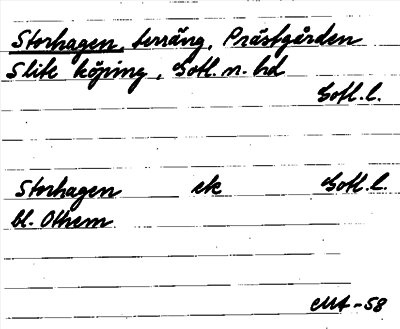 Storhagen, terräng, Prästgården
Slite köping, Gotl. n. hd
Gotl. l.
Storhagen ek Gotl. l.
bl. Othem
-58